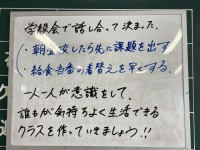 学級会で話し合って決まった。
・朝登校したら先に課題を出す
・給食当番の着替えを早くする。
一人一人が意識をして、
誰もが気持ちよく生活できる
クラスを作っていきましょう!!